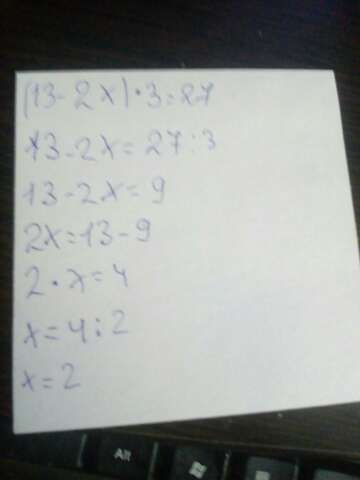 (13-2x)·3=27
13-2x=27:3
13-2x=9
2x=13-9
2·x=4
x=4:2
x=2
Alt